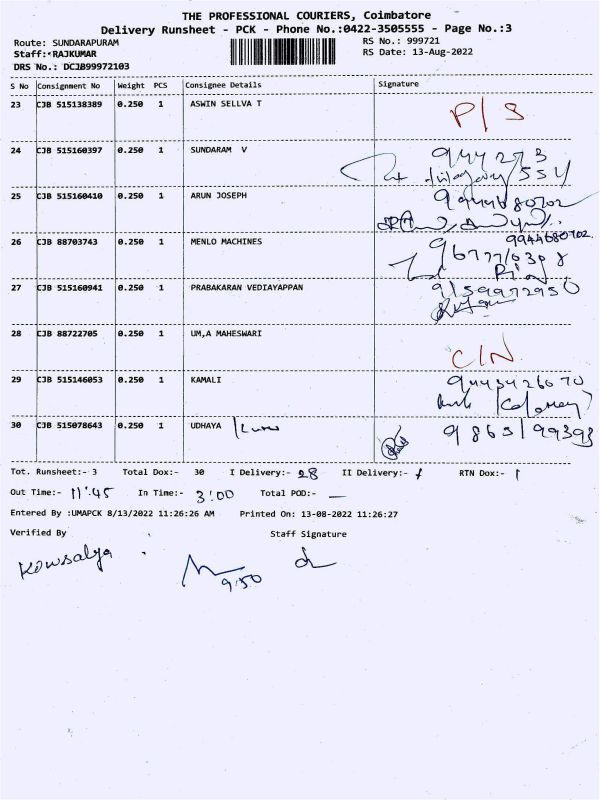 THE PROFESSIONAL COURIERS, Coimbatore
Delivery Runsheet - PCK - Phone No.:0422-3505555 - Page No.:3
Route: SUNDARAPURAM RS No.: 999721
Staff: RAJKUMAR RS Date: 13-Aug-2022
DRS No.: DCJB99972103
S No Consignment No Weight PCS Consignee Details Signature
23 CJB 515138389 0.250 1 ASWIN SELLVA T P/S
24 CJB 515160397 0.250 1 SUNDARAM V
25 CJB 515160410 0.250 1 ARUN JOSEPH 9944680702
9944680702
26 CJB 88703743 0.250 1 MENLO MACHINES
27 CJB 515160941 0.250 1 PRABAKARAN VEDIAYAPPAN 9159972950
28 CJB 88722705 0.250 1 UM,A MAHESWARI C/N
29 CJB 515146053 0.250 1 KAMALI 9443426070
30 CJB 515078643 0.250 1 UDHAYA
Tot. Runsheet:- 3 Total Dox:- 30 I Delivery:- 28 II Delivery:- RTN Dox:-
Out Time:- 11.45 In Time:- 3:00 Total POD:- —
Entered By :UMAPCK 8/13/2022 11:26:26 AM Printed On: 13-08-2022 11:26:27
Verified By Staff Signature
Kowsalya
9.50